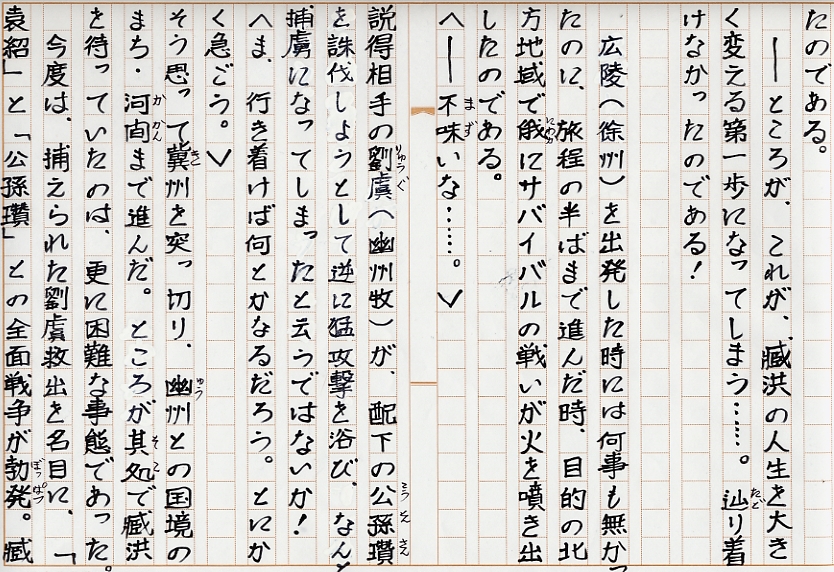 たのである。
──ところが、これが、臧洪の人生を大き
く変える第一歩になってしまう……。辿り着
けなかったのである！
広陵（徐州）を出発した時には何事も無かっ
たのに、旅程の半ばまで進んだ時、目的の北
方地域で俄にサバイバルの戦いが火を噴き出
したのである。
〈──不味いな……。〉
説得相手の劉虞（幽州牧）が、配下の公孫瓚
を誅伐しようとして逆に猛攻撃を浴び、なんと
捕虜になってしまったと云うではないか！
〈ま、行き着けば何とかなるだろう。とにか
く急ごう。〉
そう思って冀州を突っ切り、幽州との国境の
まち・河間まで進んだ。ところが其処で臧洪
を待っていたのは、更に困難な事態であった。
今度は、捕えられた劉虞救出を名目に、「
袁紹」と「公孫瓚」との全面戦争が勃発。臧